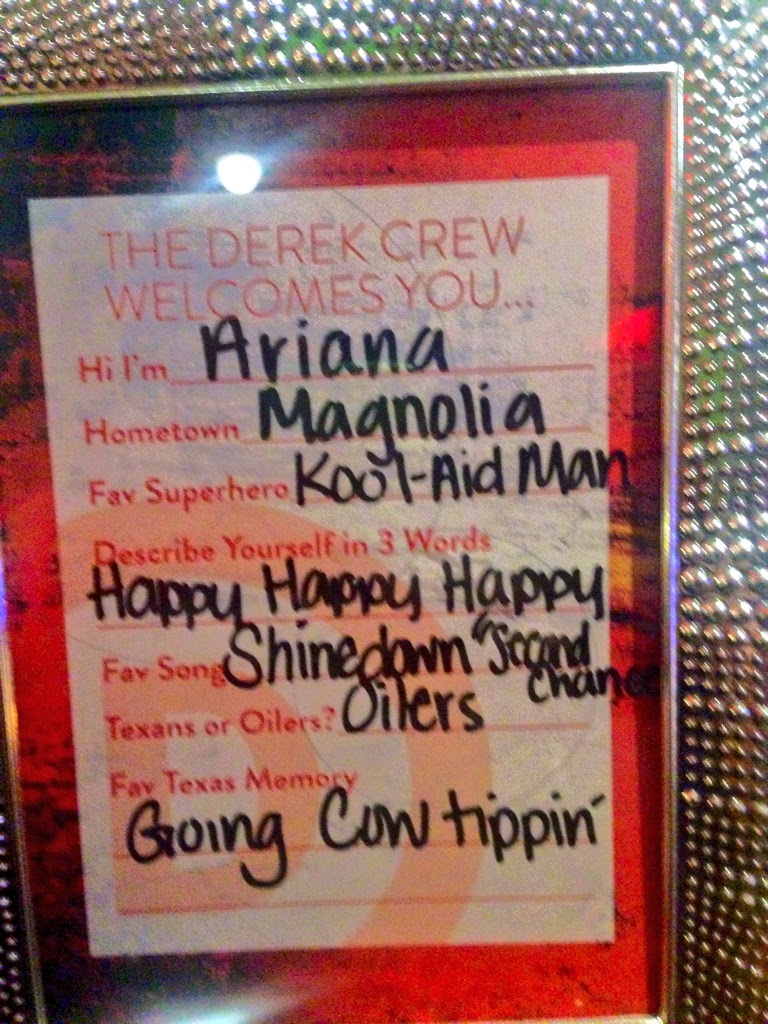 THE DEREK CREW
WELCOMES YOU...
Hi I'm Ariana
Hometown Magnolia
Fav Superhero Kool-Aid Man
Describe Yourself in 3 Words
Happy Happy Happy
Fav Song Shinedown "Second
Chance
Texans or Oilers? Oilers
Fav Texas Memory
Going Cow tippin'